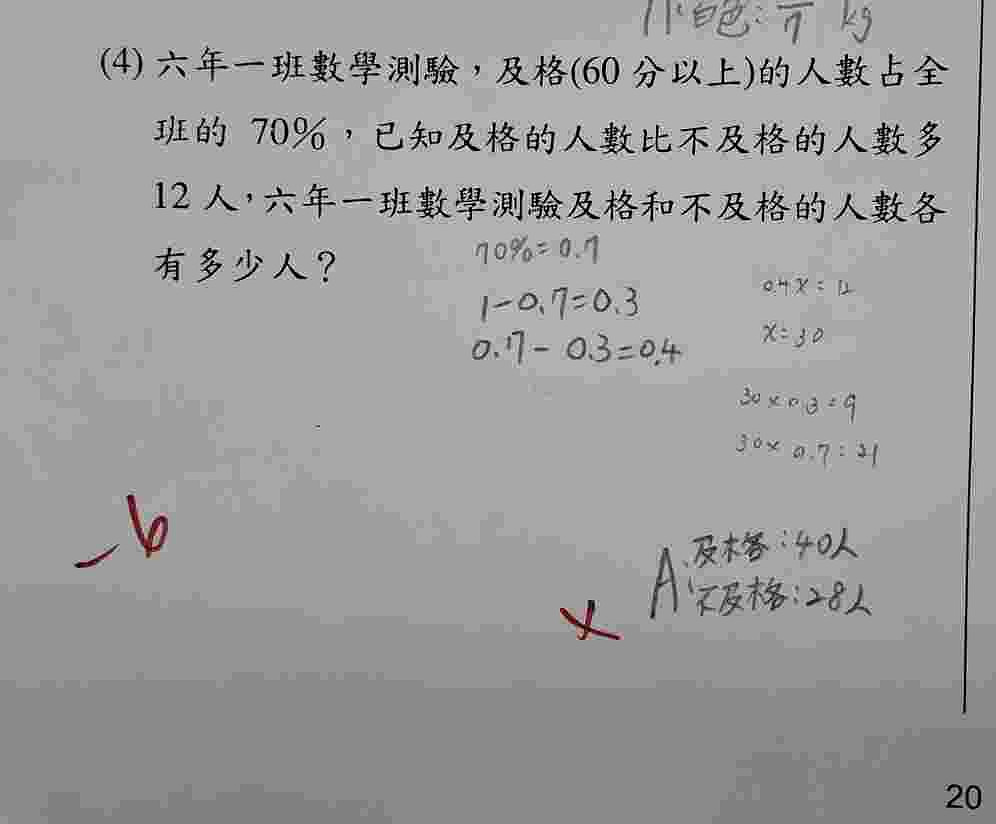 小白色: 一/7 kg
(4) 六年一班數學測驗，及格(60 分以上)的人數占全
班的 70%，已知及格的人數比不及格的人數多
12 人，六年一班數學測驗及格和不及格的人數各
有多少人？
70%=0.7
1-0.7=0.3
0.7-0.3=0.4
0.4x=12
x=30
30×0.3=9
30×0.7=21
-6
A、及格:40人
不及格:28人
20